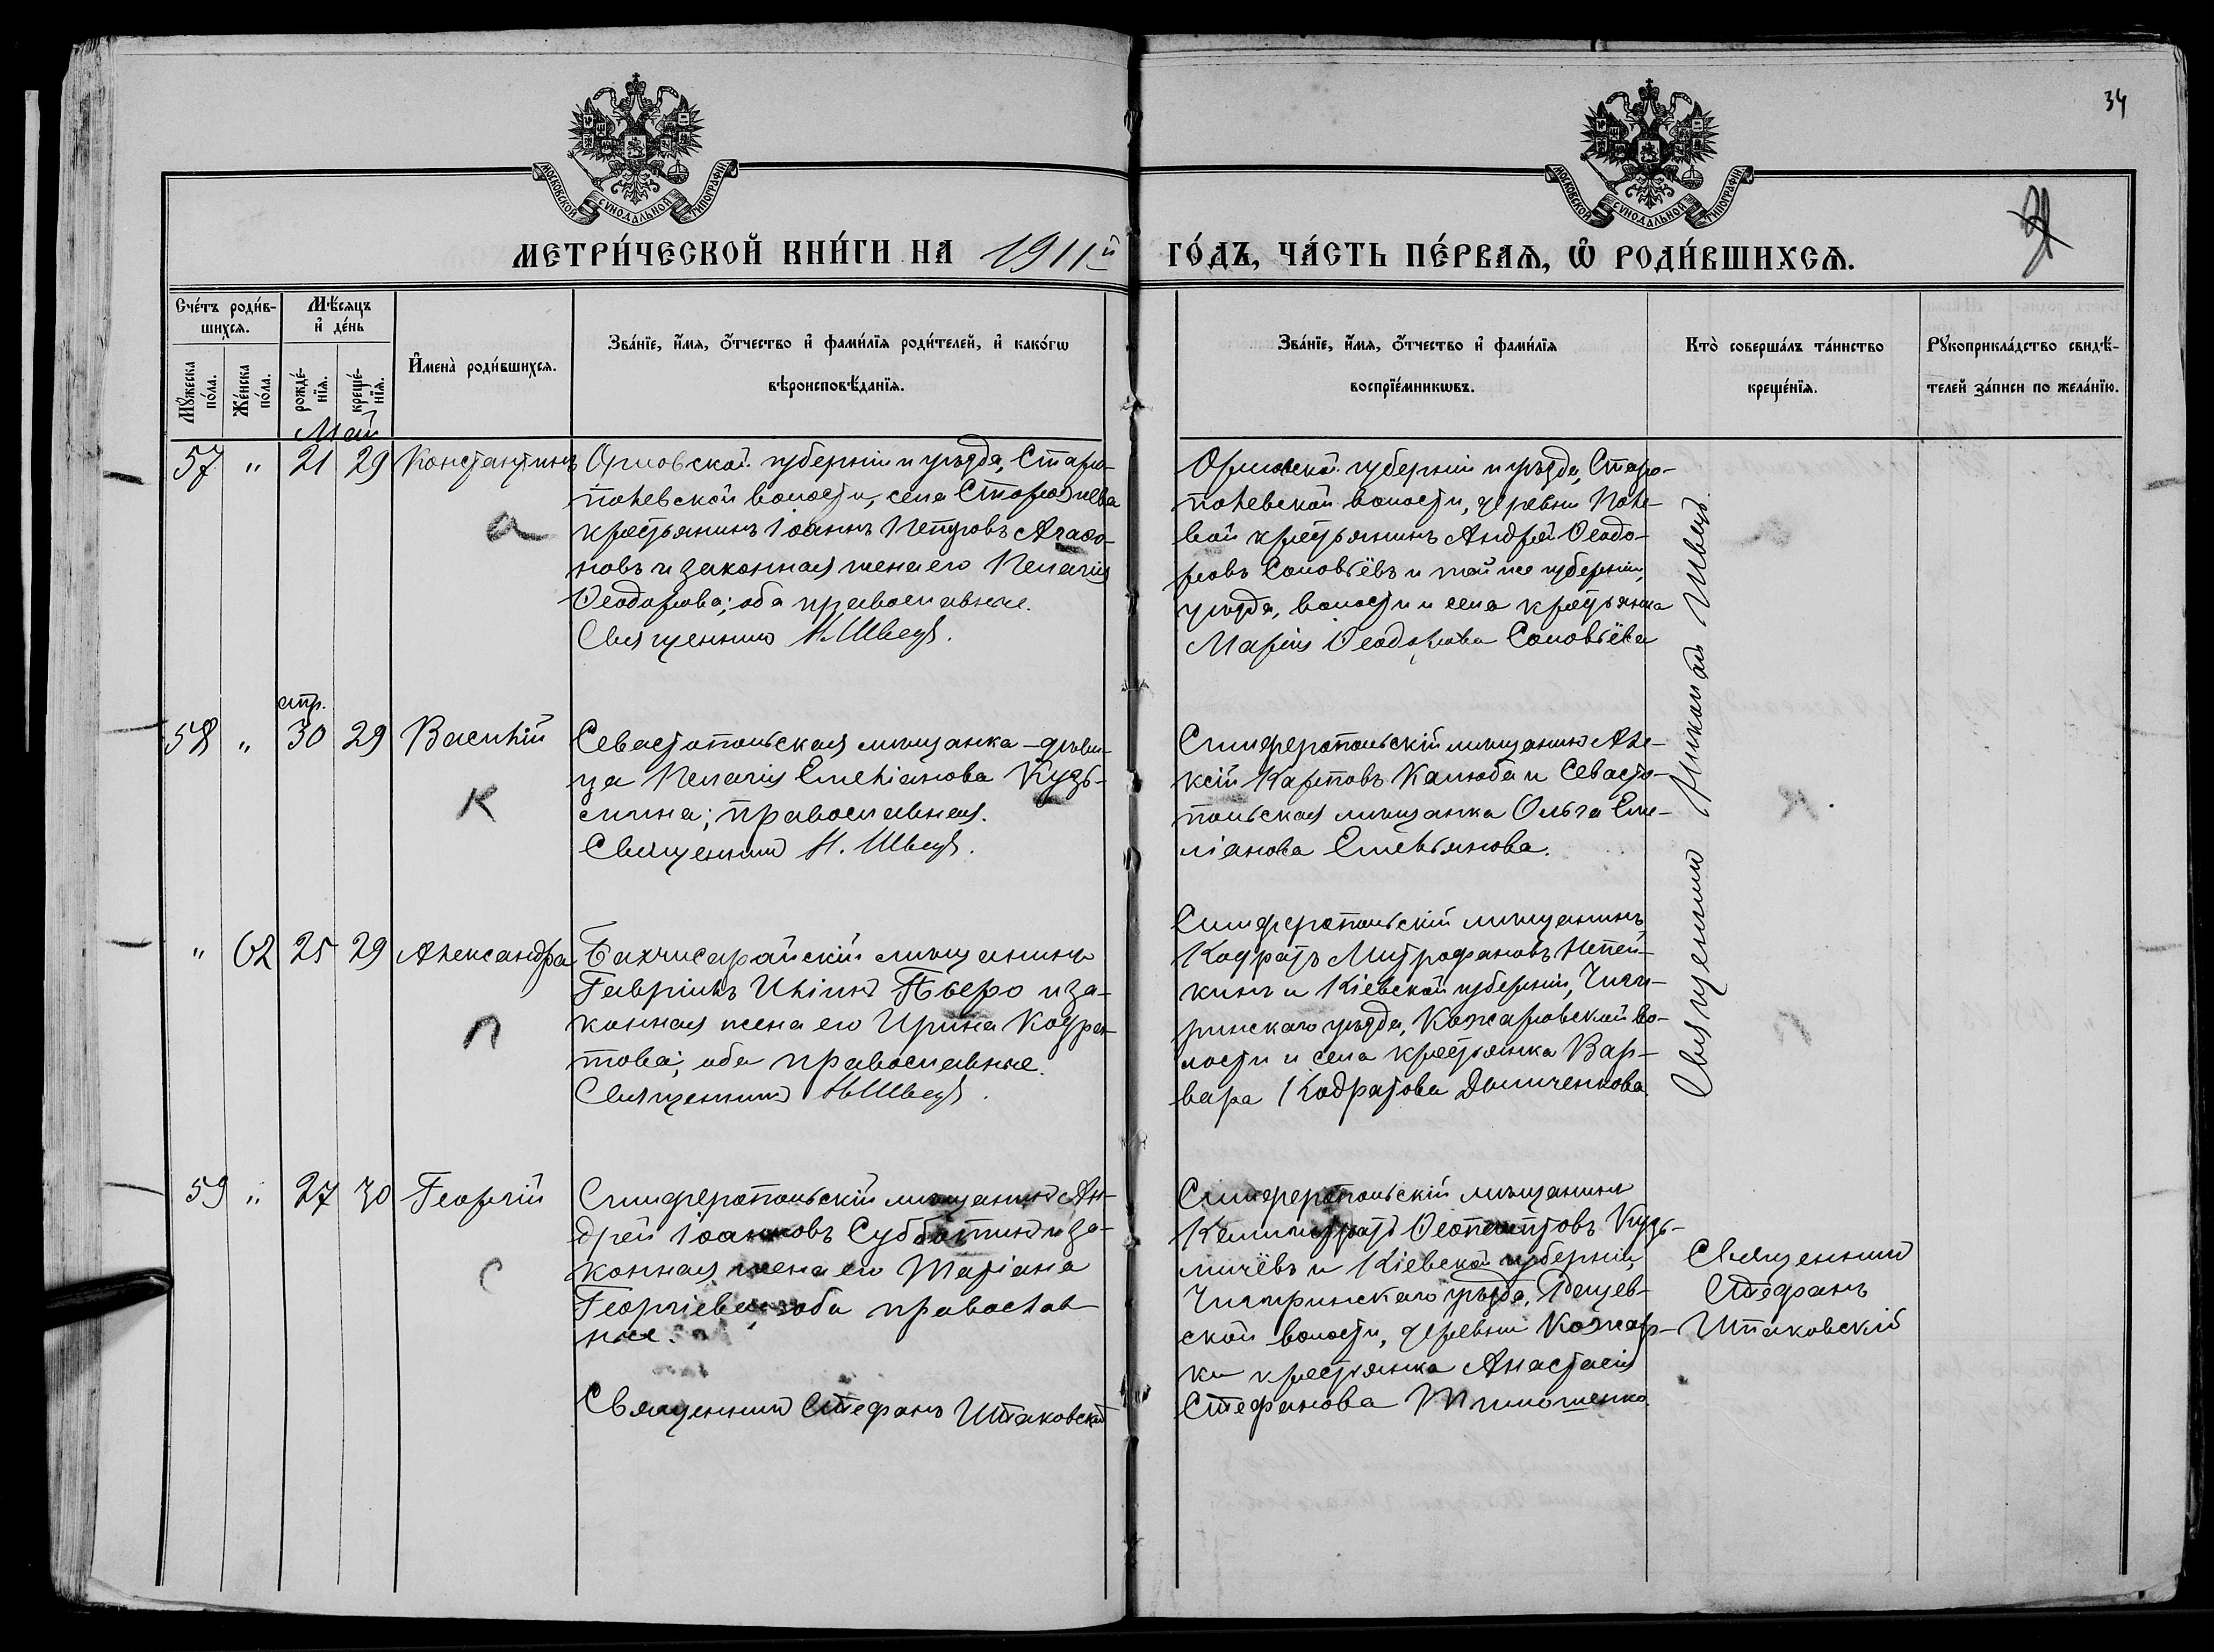 34
МОСКОВСКОЙ СѴНОДАЛЬНОЙ ТИПОГРАФІИ
МОСКОВСКОЙ СѴНОДАЛЬНОЙ ТИПОГРАФІИ
МЕТРИ́ЧЕСКОЙ КНИ́ГИ НА 1911й ГО́ДЪ, ЧА́СТЬ ПЕ́РВАѦ, Ѡ҆ РОДИ́ВШИХСѦ.
Сче́тъ роди́в-
шихсѧ.
Мѣ́сѧцъ
и҆ де́нь
Мꙋ́жеска
по́ла.
Же́нска
по́ла.
рожде́-
нїѧ.
креще́-
нїѧ.
И҆мена̀ роди́вшихсѧ.
Зва́нїе, и҆́мѧ, ѻ҆́тчество и҆ фами́лїѧ роди́телей, и҆ како́гѡ
вѣроисповѣ́данїѧ.
Зва́нїе, и҆́мѧ, ѻ҆́тчество и҆ фами́лїѧ
воспрїе́мникѡвъ.
Кто̀ соверша́лъ та́инство
креще́нїѧ.
Рꙋкоприкла́дство свидѣ́-
телей за́писи по жела́нїю.
Май
57 " 21 29 Константинъ
Орловской губерніи и уѣзда, Старо-
полевской волости, села
крестьянинъ Іоаннъ Петровъ Агаѳо-
новъ и законная жена его Пелагія
Ѳеодорова; оба православные.
Священникъ Н. Швецъ.
а
Орловской губерніи и уѣзда, Старо-
полевской волости, деревни Поле-
вой крестьянинъ Андрей Ѳеодо-
ровъ Соловьёвъ и той же губерніи,
уѣзда, волости и села крестьянка
Марія Ѳеодорова Соловьёва
стр.
58 " 30 29 Василій
Севастопольская мѣщанка-дѣви-
ца Пелагія Емеліанова Кузь-
мина; православная.
Священникъ Н. Швецъ.
К
Симферопольскій мѣщанинъ Але-
ксій Карповъ Калюба и Севасто-
польская мѣщанка Ольга Еме-
ліанова Емельянова.
" 62 25 29 Александра
Бахчисарайскій мѣщанинъ
Гавріилъ Иліинъ Пьеро и за-
конная жена его Ирина Кодра-
това; оба православные.
Священникъ Н. Швецъ.
П
Симферопольскій мѣщанинъ
Кодратъ Митрофановъ Непей-
кинъ и Кіевской губерніи, Чиги-
ринскаго уѣзда, Кожаровской во-
лости и села крестьянка Вар-
вара Кодратова
Священникъ Николай Швецъ
59 " 27 30 Георгій
Симферопольскій мѣщанинъ Ан-
дрей Іоанновъ Субботинъ и за-
конная жена его Маріана
Георгіева; оба православ-
ные.
Священникъ Стефанъ Шпаковскій
С
Симферопольскій мѣщанинъ
Каллистратъ Кузь-
мичёвъ и Кіевской губерніи,
Чигиринскаго уѣзда,
ской волости, деревни Кожар-
ки крестьянка Анастасія
Стефанова Тимошенко
Священникъ
Стефанъ
Шпаковскій